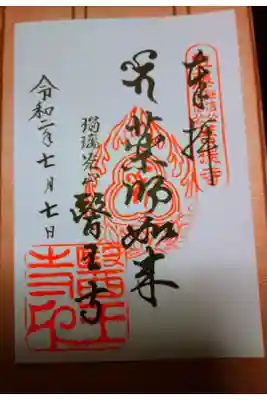 奉拝
薬師如来
瑠璃光山
醫王寺
令和二年七月七日
醫王寺印